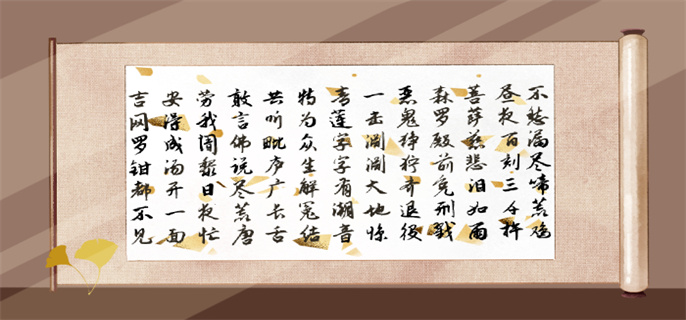 不愁漏尽啼荒鸡
昼夜百刻三千杵
菩萨慈悲泪如雨
森罗殿前免刑戮
恶鬼狰狞齐退後
一击渊渊大地惊
青莲字字有潮音
特为众生解冤结
共听毗庐广长舌
敢言佛说尽荒唐
劳我阇黎日夜忙
安得成汤开一面
吉网罗钳都不见